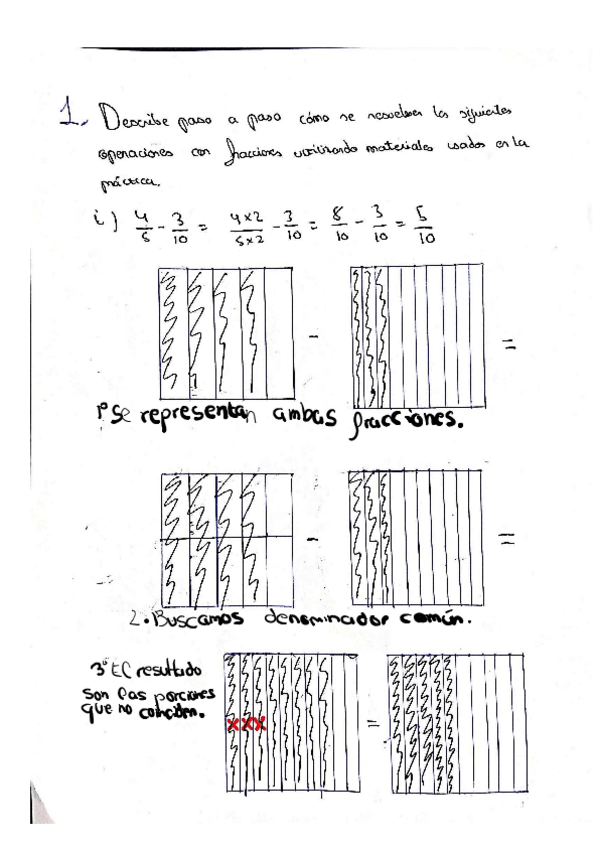 1. Describe paso a paso cómo se resuelven las siguientes
operaciones con fracciones utilizando materiales usados en la
práctica.
i) 4/5 - 3/10 = 4x2/5x2 - 3/10 = 8/10 - 3/10 = 5/10
- =
1º Se representan ambas fracciones.
- =
2. Buscamos denominador común.
3º El resultado
son las porciones
que no coinciden.
xxx =